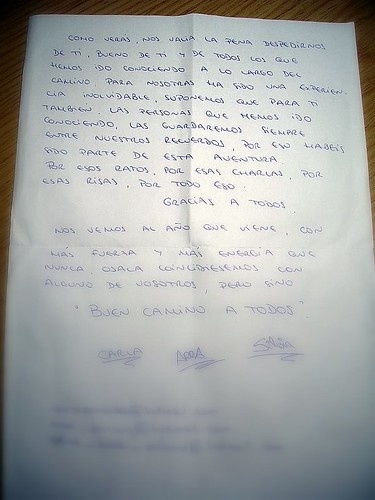 COMO VERAS, NOS VALIA LA PENA DESPEDIRNOS
DE TI, BUENO DE TI Y DE TODOS LOS QUE
HEMOS IDO CONOCIENDO A LO LARGO DEL
CAMINO PARA NOSOTRAS HA SIDO UNA EXPERIEN-
CIA INOLVIDABLE, SUPONEMOS QUE PARA TI
TAMBIEN, LAS PERSONAS QUE HEMOS IDO
CONOCIENDO, LAS GUARDAREMOS SIEMPRE
ENTRE NUESTROS RECUERDOS, POR ESO HABEIS
SIDO PARTE DE ESTA AVENTURA.
POR ESOS RATOS, POR ESAS CHARLAS, POR
ESAS RISAS, POR TODO ESO.
GRACIAS A TODOS
NOS VEMOS AL AÑO QUE VIENE, CON
MÁS FUERZA Y MÁS ENERGÍA QUE
NUNCA OJALA COINCIDIESEMOS CON
ALGUNO DE VOSOTROS, PERO SINO
"BUEN CAMINO A TODOS"
CARLA SARA